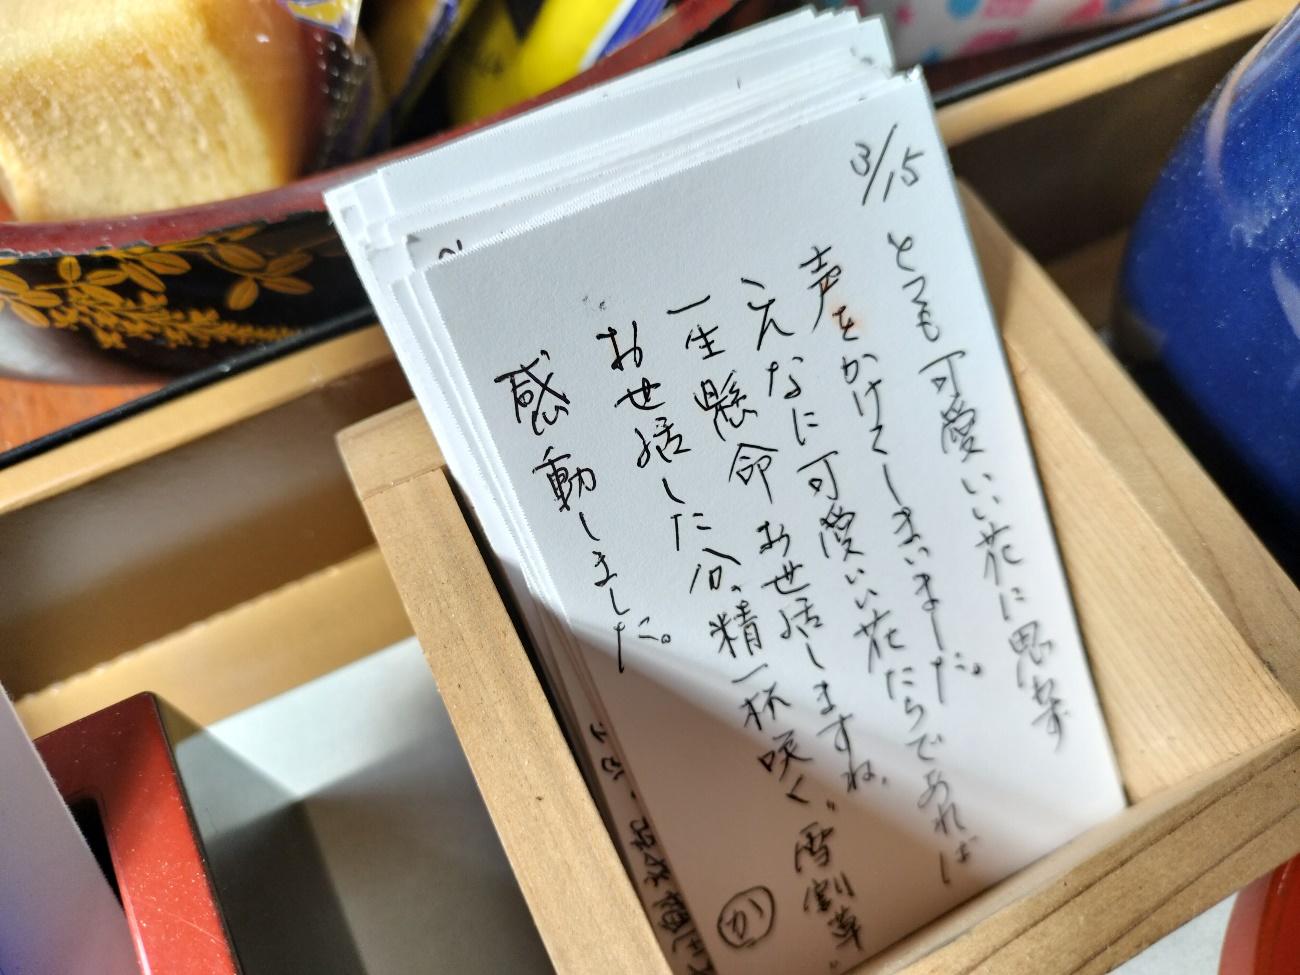 3/15
とっても可愛いい花に思わず
声をかけてしまいました。
こんなに可愛いい花たちであれば
一生懸命お世話しますね。
お世話した分、精一杯咲く〝雪割草〟
感動しました。
か